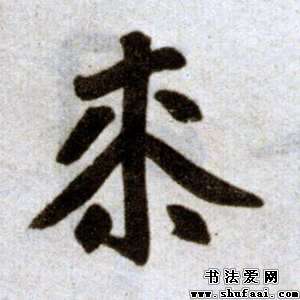 桼
书法爱网
www.shufaai.com